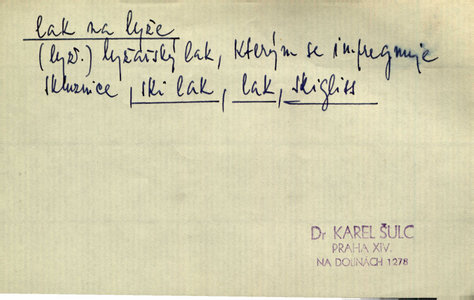 lak na lyže
(lyž.) lyžařský lak, kterým se impregnuje
skluznice, ski lak, lak, skigliss
Dr KAREL ŠULC
PRAHA XIV.
NA DOLINÁCH 1278